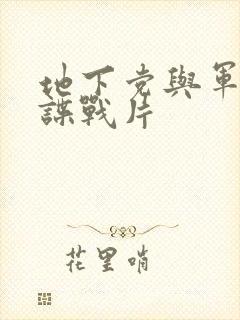 地下党與軍
諜戰片
花里哨